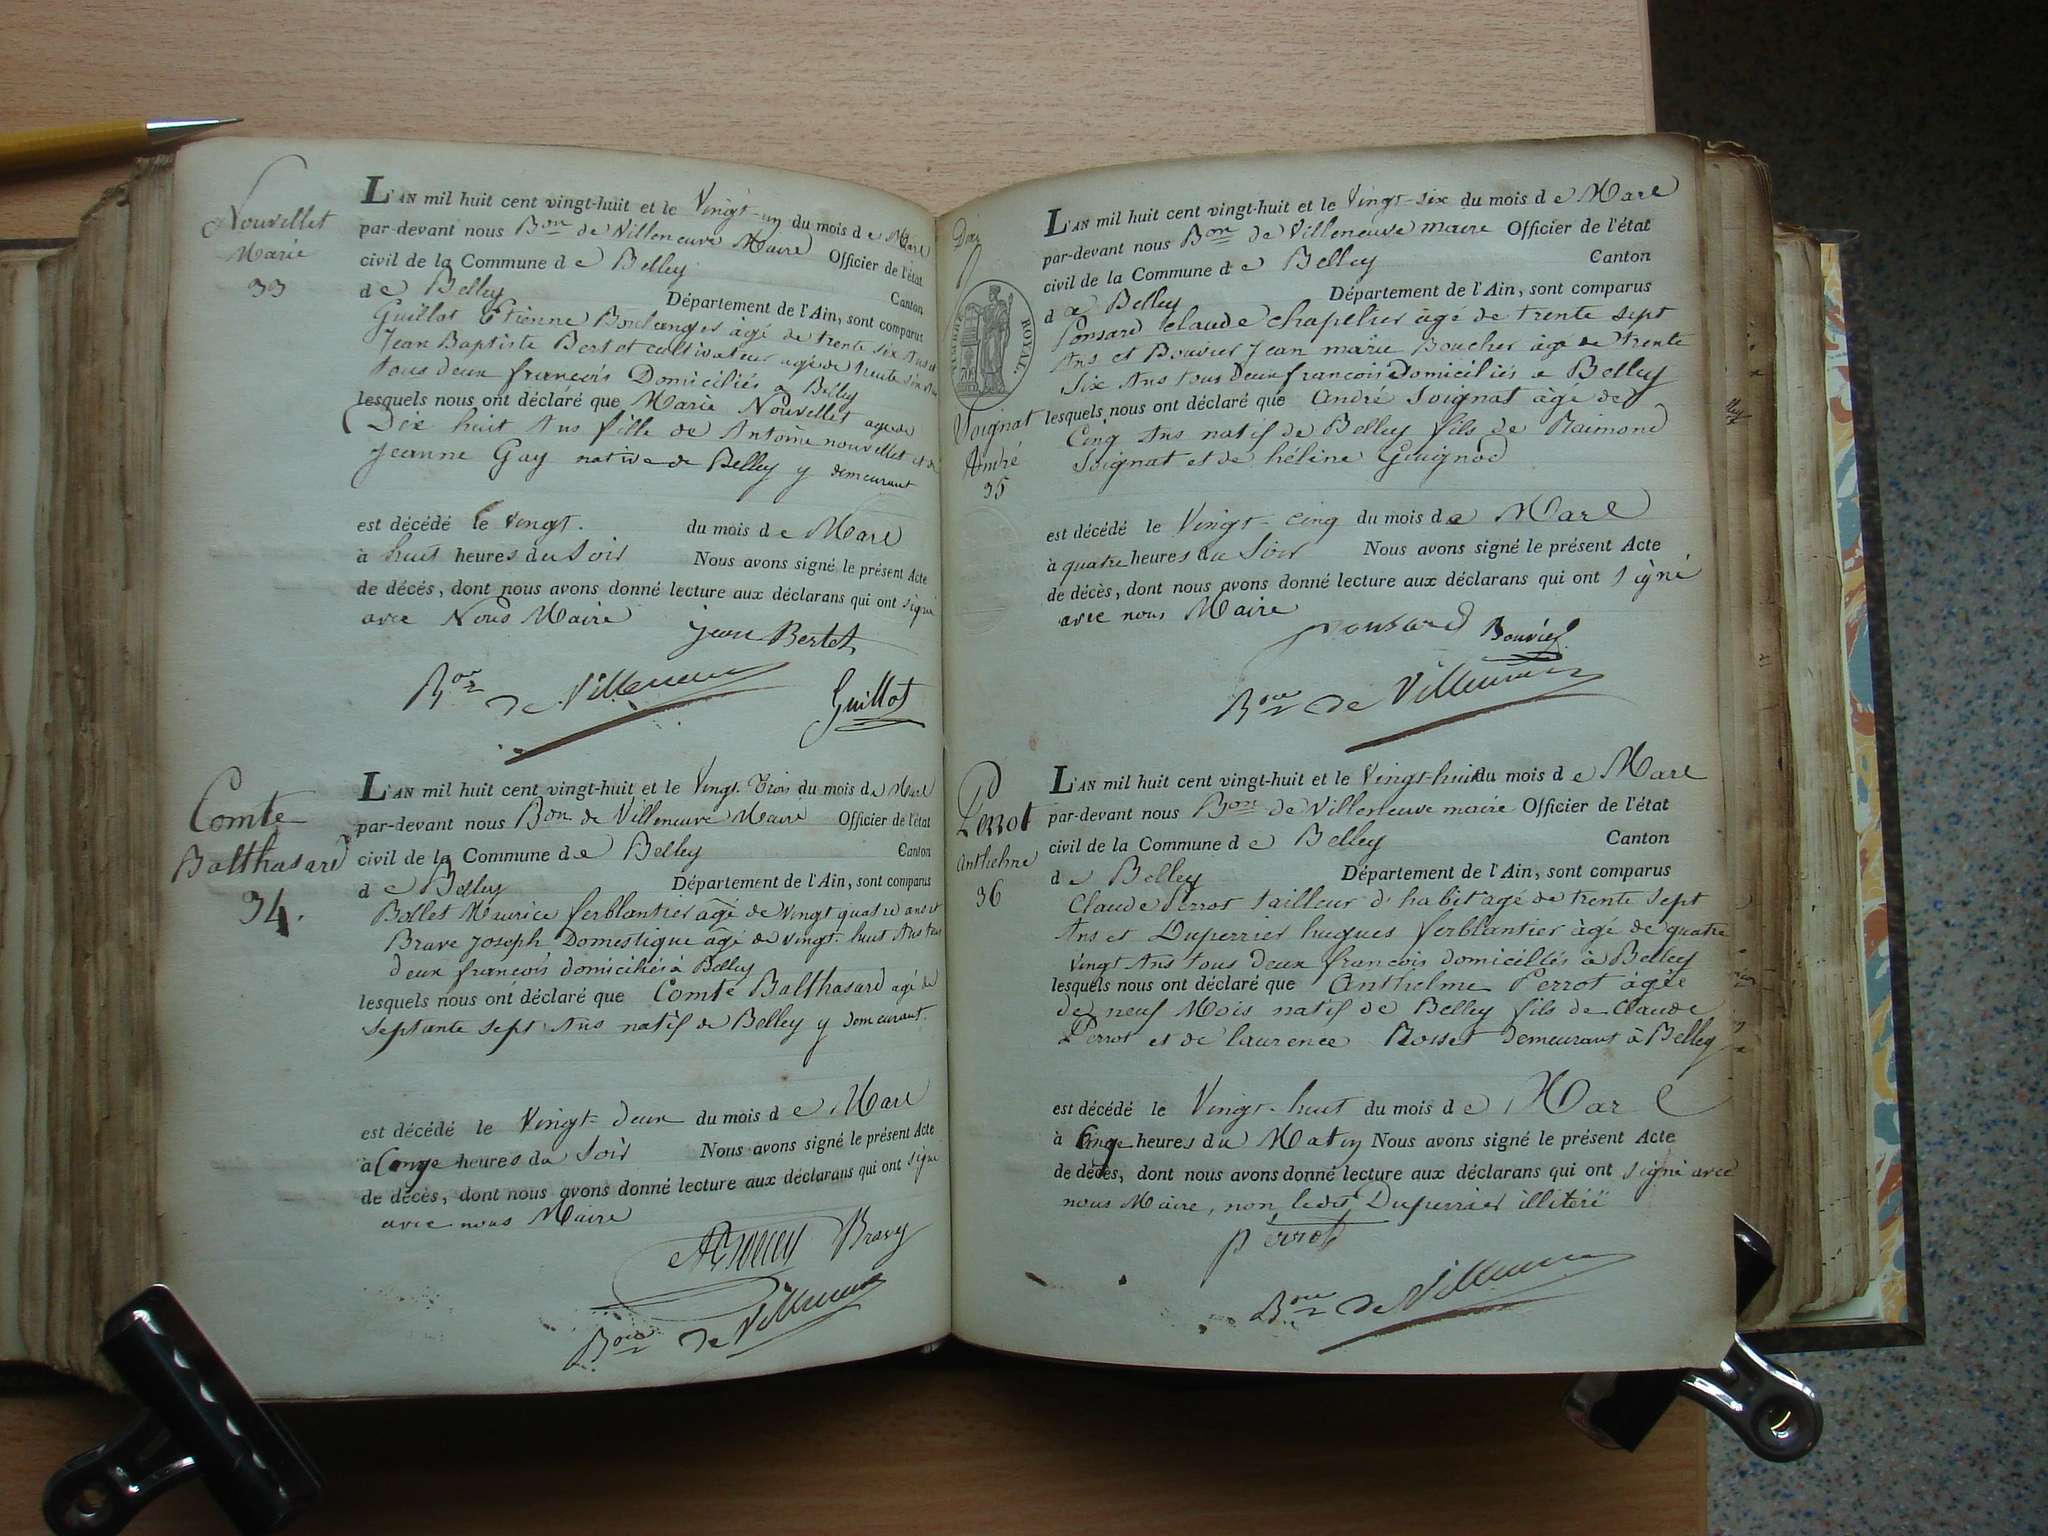 Nouvellet
Marie
33
L'AN mil huit cent vingt-huit et le Vingt-un du mois de Mars
par-devant nous Bon de Villeneuve Maire Officier de l'état
civil de la Commune de Belley Canton
de Belley Département de l'Ain, sont comparus
Guillot Etienne Boulanger âgé de trente six Ans et
Jean Baptiste Bertet cultivateur agé de trente six Ans
tous deux francois Domiciliés a Belley
lesquels nous ont déclaré que Marie Nouvellet agée de
Dix huit Ans fille de Antoine nouvellet et de
Jeanne Gay native de Belley y demeurant
est décédé le Vingt. du mois de Mars
à huit heures du Soir Nous avons signé le présent Acte
de décès, dont nous avons donné lecture aux déclarans qui ont signé
avec Nous Maire
jean Bertet
Bon de Villeneuve
Guillot
Comte
Balthasard
34.
L'AN mil huit cent vingt-huit et le Vingt-Trois du mois de Mars
par-devant nous Bon de Villeneuve Maire Officier de l'état
civil de la Commune de Belley Canton
de Belley Département de l'Ain, sont comparus
Bollet Maurice ferblantier âgé de vingt quatre ans et
Brave Joseph Domestique âgé de vingt-huit Ans tous
deux francois domiciliés à Belley
lesquels nous ont déclaré que Comte Balthasard agé de
Septante sept Ans natif de Belley y demeurant.
est décédé le Vingt-deux du mois de Mars
à Onze heures du Soir Nous avons signé le présent Acte
de décès, dont nous avons donné lecture aux déclarans qui ont signé
avec nous Maire
Bravy
Bon de Villeneuve
TIMBRE ROYAL.
Soignat
André
35
L'AN mil huit cent vingt-huit et le Vingt-six du mois de Mars
par-devant nous Bon de Villeneuve maire Officier de l'état
civil de la Commune de Belley Canton
de Belley Département de l'Ain, sont comparus
Ponsard Claude chapelier âgé de trente sept
Ans et Bouvier Jean marie Boucher âgé de trente
Six Ans tous deux francois Domiciliés a Belley
lesquels nous ont déclaré que André Soignat âgé de
Cinq Ans natif de Belley fils de Raimond
Soignat et de hélène Guignod
est décédé le Vingt-cinq du mois de Mars
à quatre heures du Soir Nous avons signé le présent Acte
de décès, dont nous avons donné lecture aux déclarans qui ont signé
avec nous Maire
ponsard Bouvier
Bon de Villeneuve
Perrot
Anthelme
36
L'AN mil huit cent vingt-huit et le Vingt-huit du mois de Mars
par-devant nous Bon de Villeneuve maire Officier de l'état
civil de la Commune de Belley Canton
de Belley Département de l'Ain, sont comparus
Claude Perrot tailleur d'habit agé de trente sept
Ans et Duperrier hugues ferblantier âgé de quatre
vingt Ans tous deux francois domiciliés à Belley
lesquels nous ont déclaré que Anthelme Perrot âgée
de neuf Mois natif de Belley fils de Claude
Perrot et de laurence Rosset demeurant à Belley
est décédé le Vingt-huit du mois de Mars
à Onze heures du Matin Nous avons signé le présent Acte
de décès, dont nous avons donné lecture aux déclarans qui ont signé avec
nous Maire, non ledit Duperrier illitéré
perrot
Bon de Villeneuve